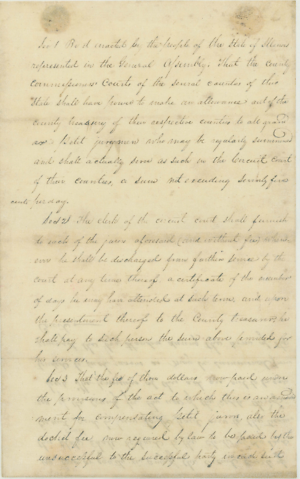 Sec 1 Be it enacted by the People of the State of Illinois
represented in the General Assembly, That the county
commissioners Courts of the several counties of this
State shall have power to make an allowance out of the
county treasury of their respective counties to all grand
and Petit jurymen who may be regularly summoned
and shall actually serve as such in the Circuit court
of their counties, a sum not exceeding seventy five
cents per day.
Sec 2 The clerk of the circuit court shall furnish
to each of the jurors aforesaid, without fee whenever
he shall be discharged from further service by the
court at any term thereof a certificate of the number
of days he may have attended at such term and upon
the presentment thereof to the County treasurer, he
shall pay to such person the sum above provided for
his service.
Sec 3 That the fee of three dollars now paid under
the provisions of the act to which this is an amend
ment for compensating Petit jurors, also the
docket fee now required by law to be paid by the
unsuccessful to the successful party in such suits